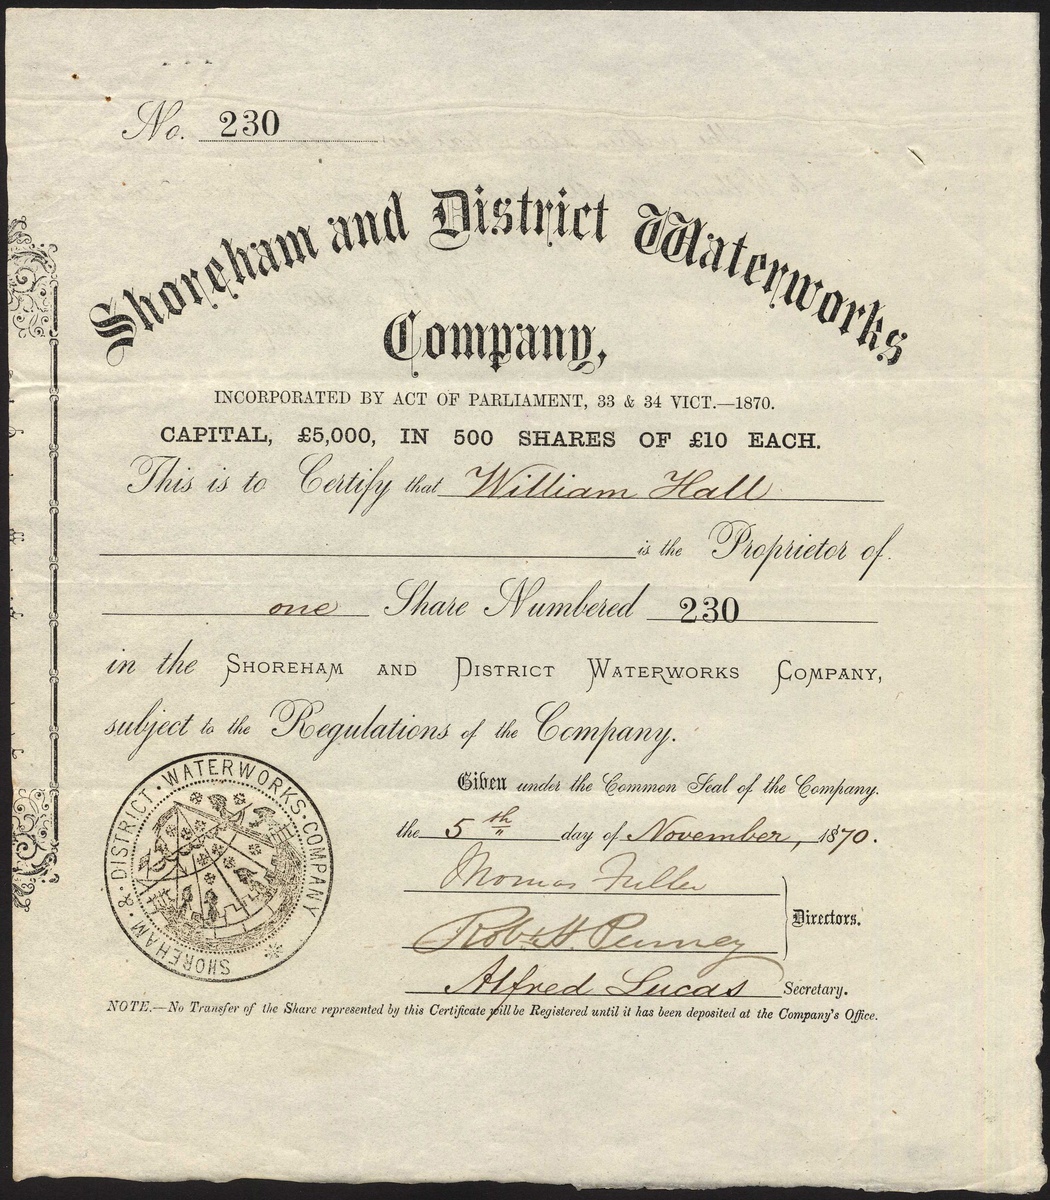 No. 230
Shoreham and District Waterworks
Company,
INCORPORATED BY ACT OF PARLIAMENT, 33 & 34 VICT.—1870.
CAPITAL, £5,000, IN 500 SHARES OF £10 EACH.
This is to Certify that William Hall
is the Proprietor of
one Share Numbered 230
in the SHOREHAM AND DISTRICT WATERWORKS COMPANY,
subject to the Regulations of the Company.
Given under the Common Seal of the Company.
the 5th day of November, 1870.
Thomas Fuller
Directors.
Robt H. Penney
Alfred Lucas Secretary.
SHOREHAM · & · DISTRICT · WATERWORKS · COMPANY
NOTE.—No Transfer of the Share represented by this Certificate will be Registered until it has been deposited at the Company's Office.